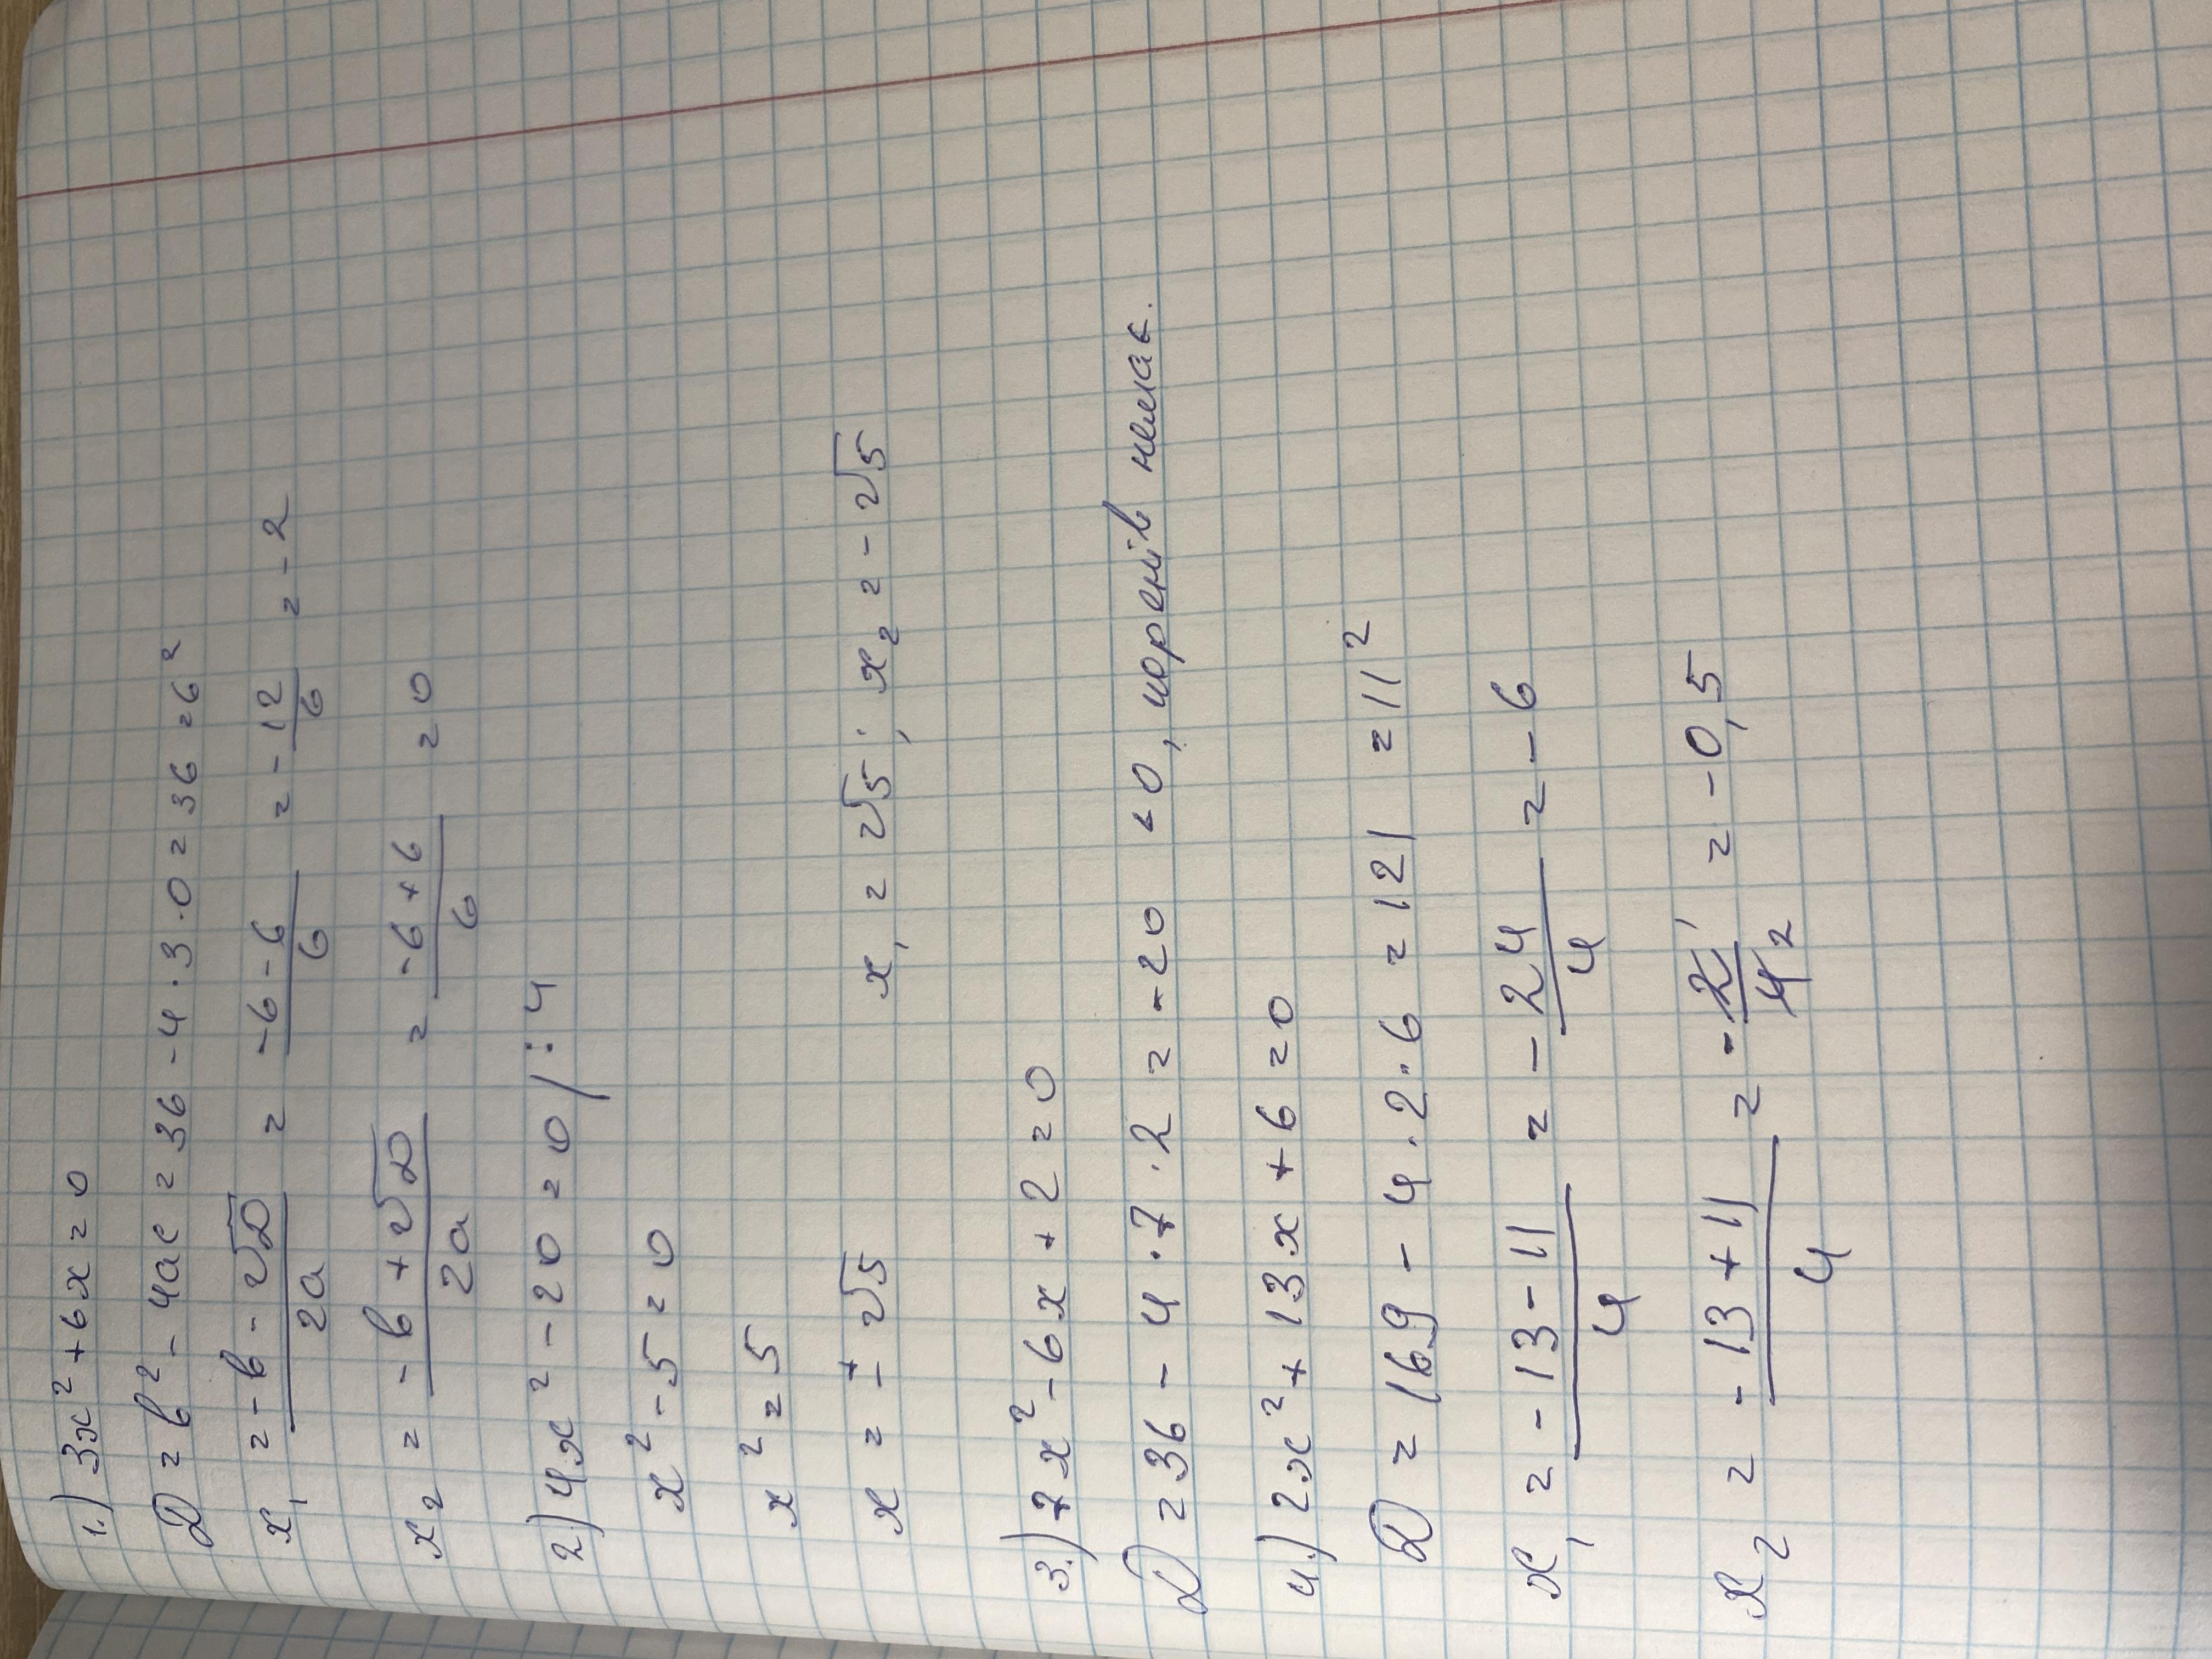 1.) 3x² + 6x = 0
D = b² - 4ac = 36 - 4 · 3 · 0 = 36 = 6²
x₁ = (-b - √D)/(2a) = (-6 - 6)/6 = -12/6 = -2
x₂ = (-b + √D)/(2a) = (-6 + 6)/6 = 0
2.) 4x² - 20 = 0 / : 4
x² - 5 = 0
x² = 5
x = ±√5 x₁ = √5; x₂ = -√5
3.) 7x² - 6x + 2 = 0
D = 36 - 4 · 7 · 2 = -20 < 0, коренів немає.
4.) 2x² + 13x + 6 = 0
D = 169 - 4 · 2 · 6 = 121 = 11²
x₁ = (-13 - 11)/4 = -24/4 = -6
x₂ = (-13 + 11)/4 = -2̸¹/4̸₂ = -0,5